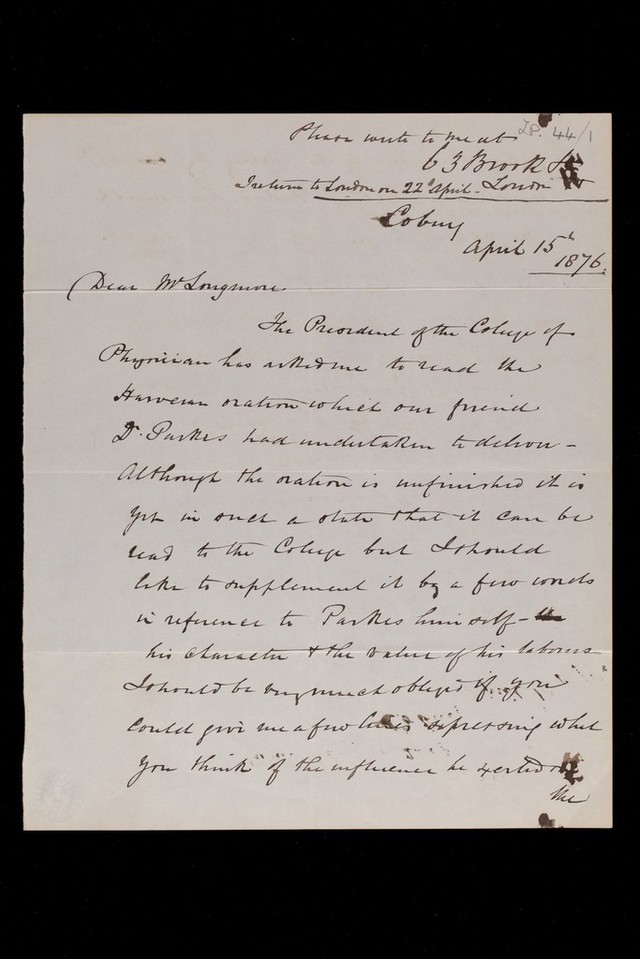 28. 44/1
Please write to me at
63 Brook St
I return to London on 22d April - London W
Coburg
April 15th
1876.
Dear Mr Longmore
The President of the College of
Physician has asked me to read the
Harveian oration which our friend
Dr. Parkes had undertaken to deliver -
Although the oration is unfinished it is
yet in such a state that it can be
read to the College but I should
like to supplement it by a few words
in reference to Parkes himself -
his character & the value of his labours
I should be very much obliged if you
could give me a few lines expressing what
you think of the influence he exerted on
the